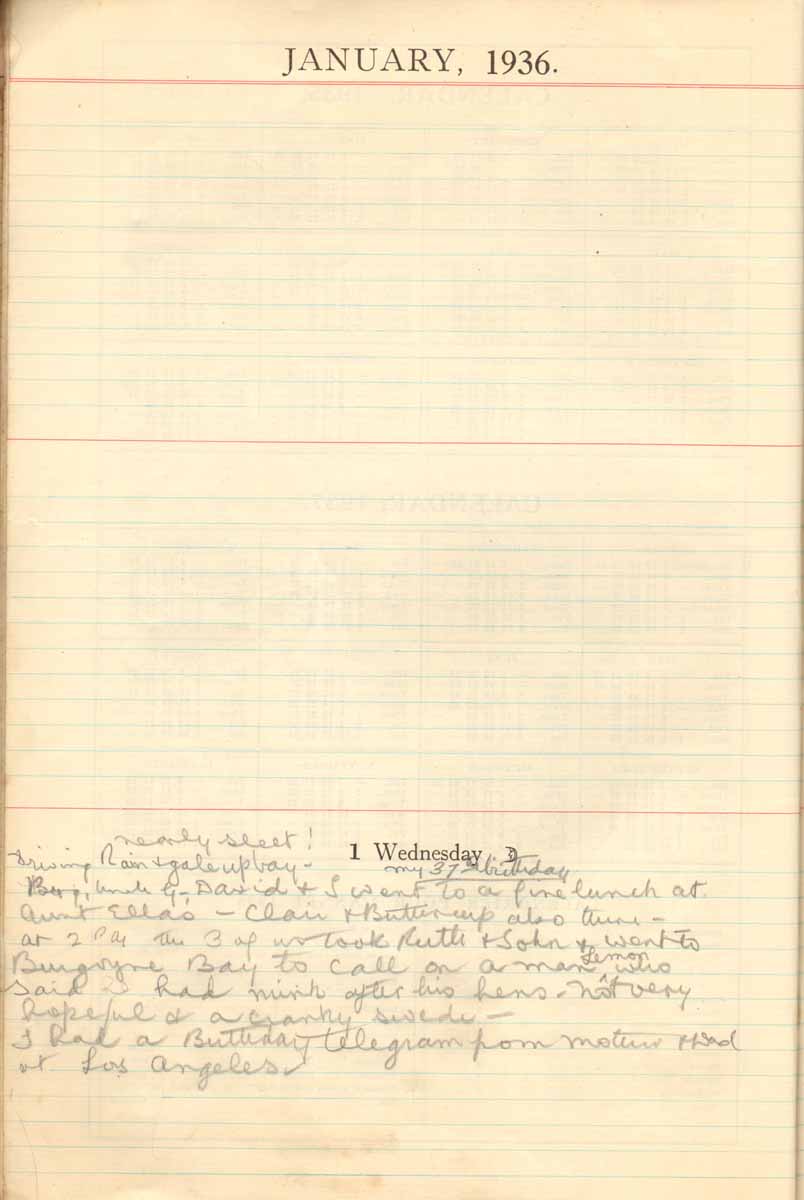 JANUARY, 1936.
nearly sleet!
1 Wednesday
Driving Rain & gale up bay -
my 37th birthday
Uncle G, David & I went to a fine lunch at
Aunt Ella's - Clair & Buttercup also there -
at 2 PM the 3 of us took Ruth & John & went to
Burgoyne Bay to call on a man Lemon who
said I had mink after his hens - not very
hopeful & a cranky swede -
I had a Birthday telegram from mother & Dad
at Los Angeles